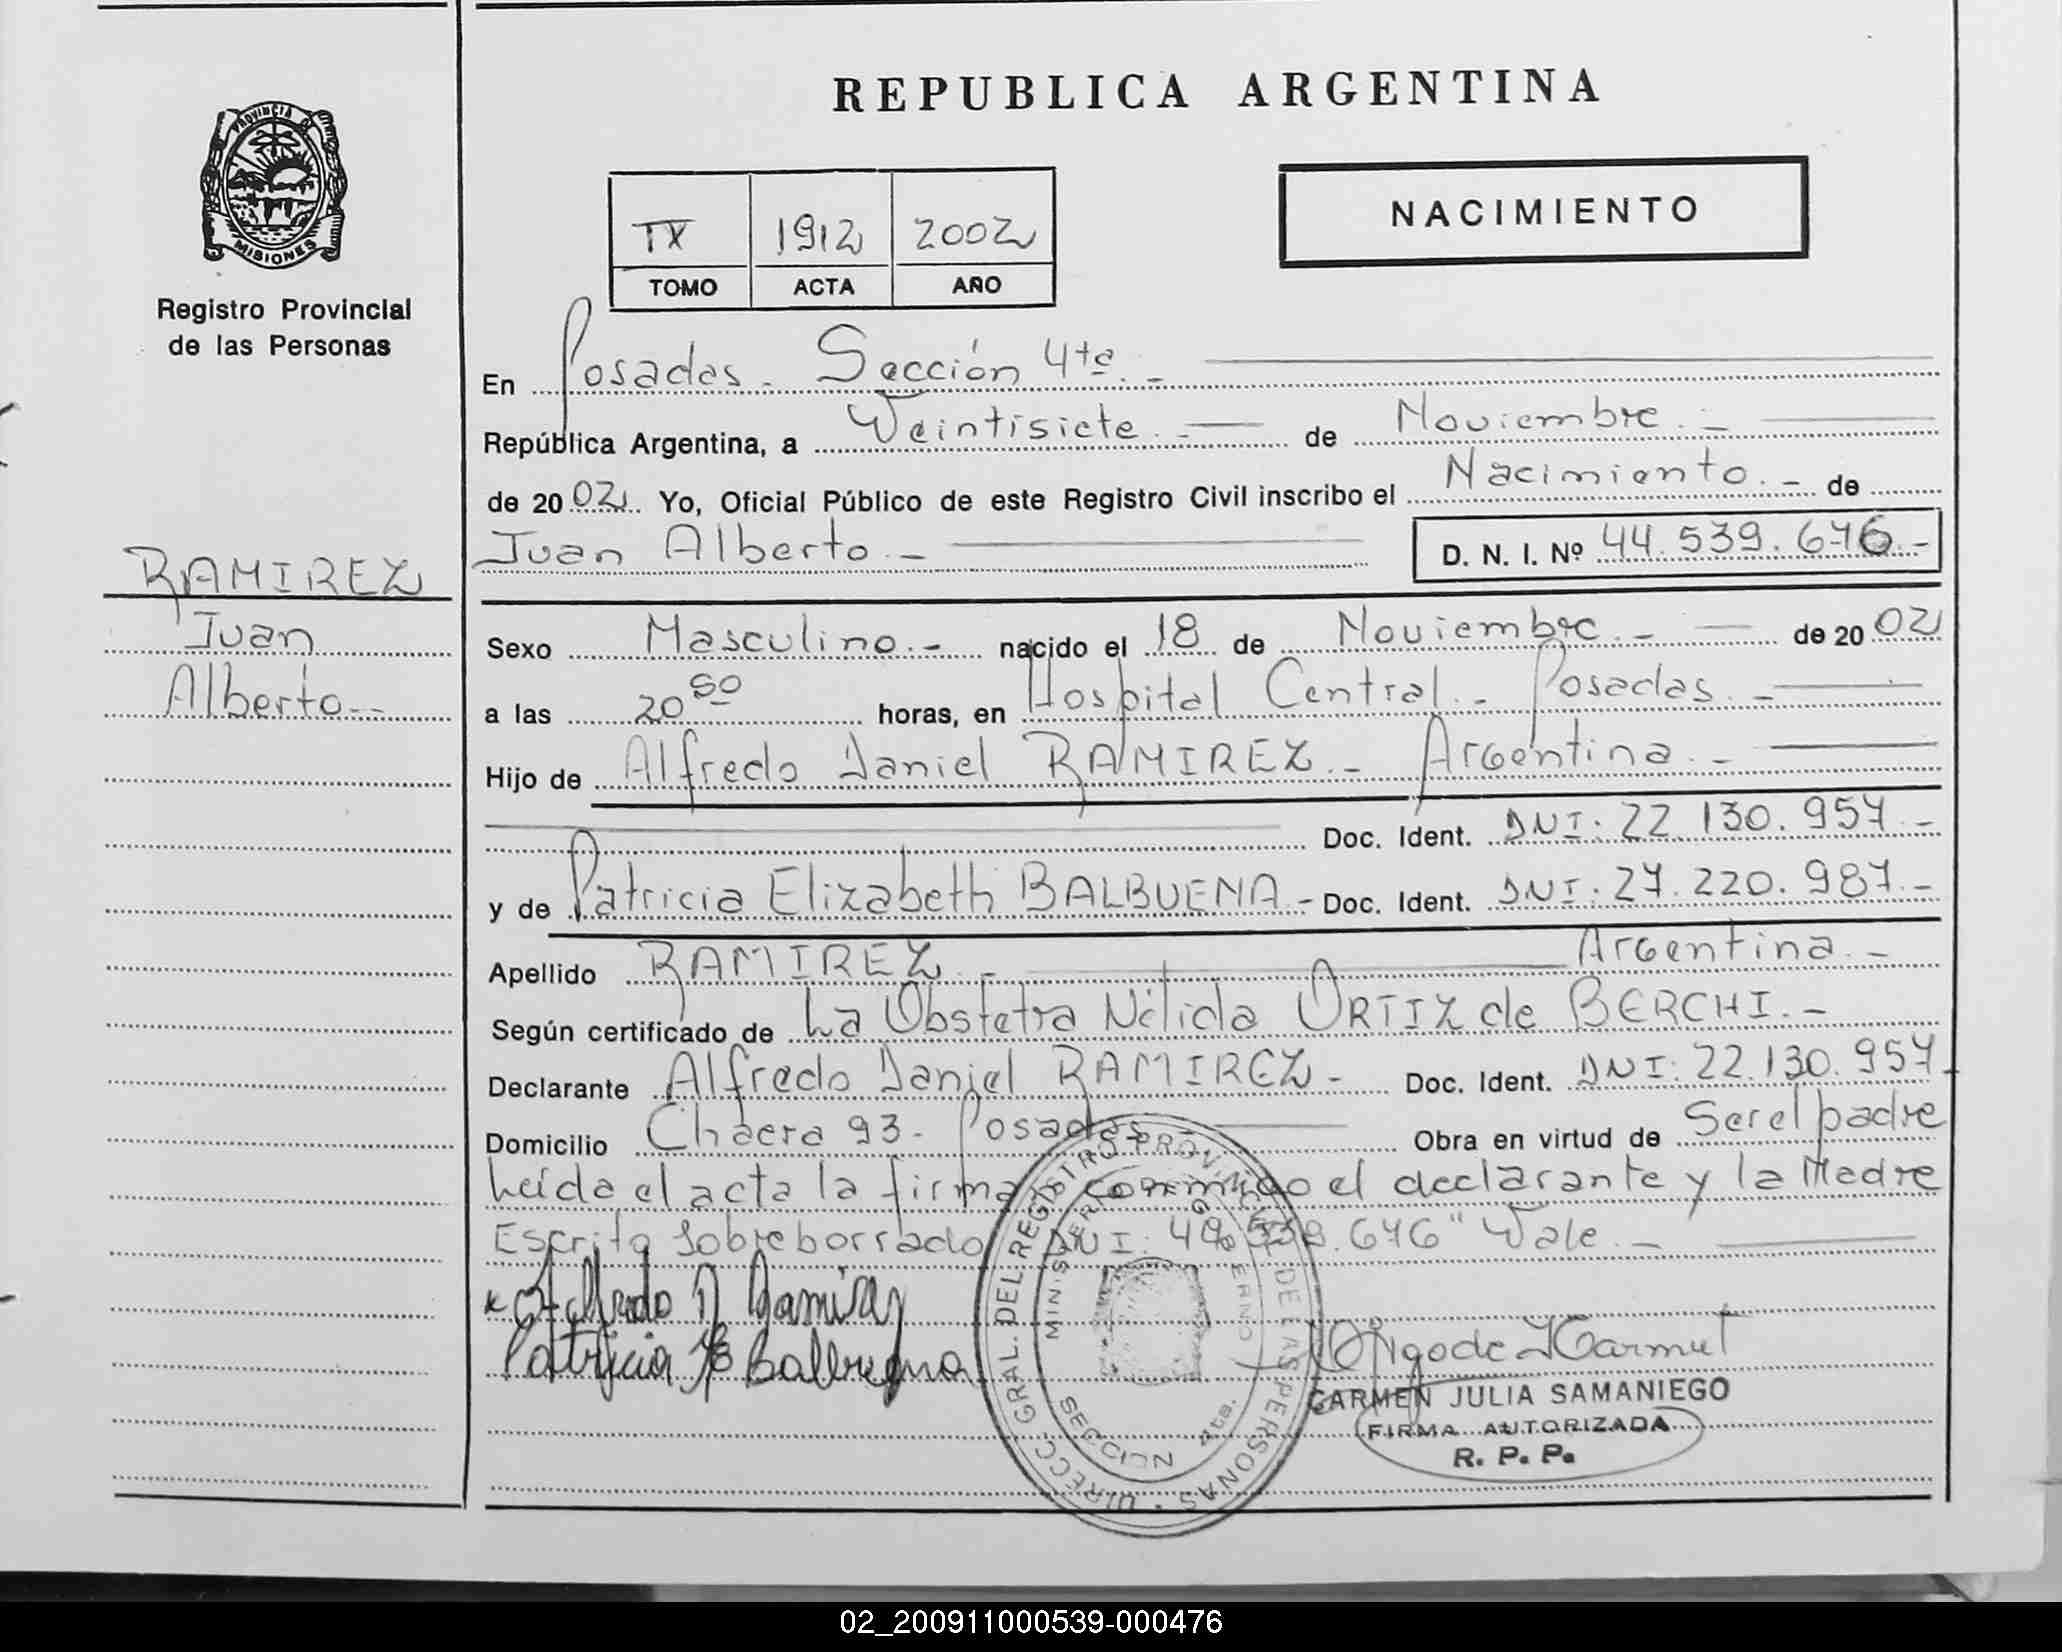 REPUBLICA ARGENTINA
PROVINCIA DE
MISIONES
Registro Provincial
de las Personas
TX 1912 2002
TOMO ACTA AÑO
NACIMIENTO
En Posadas. Sección 4ta.-
República Argentina, a Veintisiete.- de Noviembre.-
de 2002. Yo, Oficial Público de este Registro Civil inscribo el Nacimiento.- de
Juan Alberto.- D. N. I. Nº 44.539.676.-
RAMIREZ
Juan
Alberto.-
Sexo Masculino.- nacido el 18 de Noviembre.- de 2002
a las 20 50 horas, en Hospital Central.- Posadas.-
Hijo de Alfredo Daniel RAMIREZ.- Argentina.-
Doc. Ident. DNI: 22.130.957.-
y de Patricia Elizabeth BALBUENA.- Doc. Ident. DNI: 27.220.987.-
Apellido RAMIREZ.- Argentina.-
Según certificado de La Obstetra Nélida ORTIZ de BERCHI.-
Declarante Alfredo Daniel RAMIREZ.- Doc. Ident. DNI: 22.130.957.-
Domicilio Chacra 93- Posadas Obra en virtud de Ser el padre
Leída el acta la firma conmigo el declarante y la Madre
Escrito sobreborrado DNI: 44.539.676" Vale.-
Alfredo D Ramirez
Patricia E Balbuena
DIRECC. GRAL. DEL REGISTRO PROVINCIAL DE LAS PERSONAS
SECCION 4ta.
CARMEN JULIA SAMANIEGO
FIRMA AUTORIZADA
R. P. P.
02_200911000539-000476